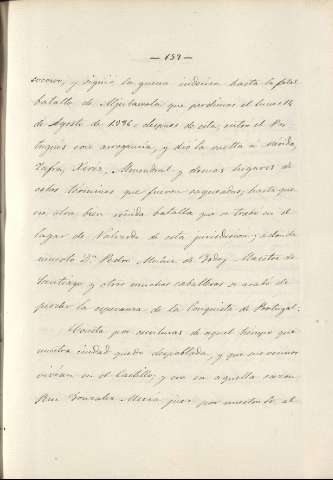 — 159 —
socorro, y siguió la guerra indecisa hasta la fatal
batalla de Aljubarrota que perdimos el lunes 14
de Agosto de 1386: despues de esta, entró el Por-
tugués con arrogancia, y dió la vuelta a Merida,
Zafra, Xerez, Almendral y demas lugares de
estos terminos que fueron saqueados, hasta que
en otra bien reñida batalla que se trabó en el
lugar de Valverde de esta jurisdiccion; adonde
murió Dn. Pedro Muñiz de Godoy Maestre de
Santiago y otros muchos caballeros se acabó de
perder la esperanza de la Conquista de Portugal.
Consta por escrituras de aquel tiempo que
nuestra ciudad quedó despoblada, y que sus vecinos
vivian en el Castillo; y era en aquella sazon
Rui Gonzalez Mexia juez por nuestro